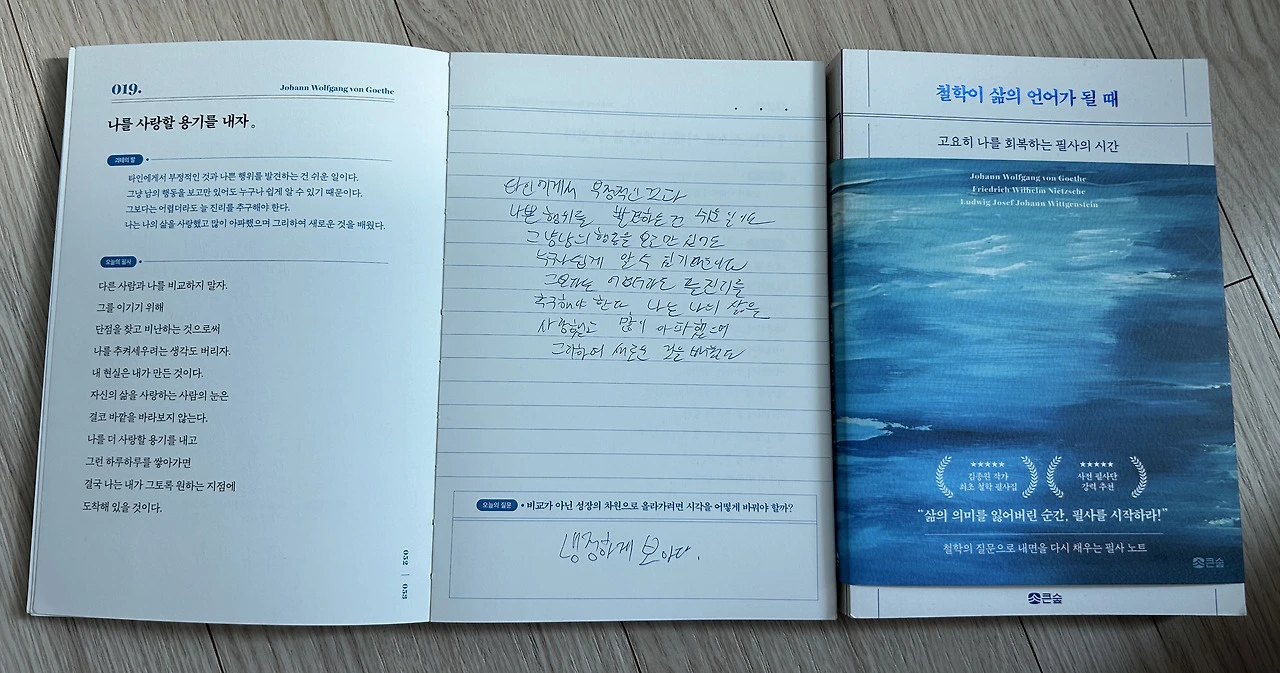 019.
Johann Wolfgang von Goethe
나를 사랑할 용기를 내자。
괴테의 말
타인에게서 부정적인 것과 나쁜 행위를 발견하는 건 쉬운 일이다.
그냥 남의 행동을 보고만 있어도 누구나 쉽게 알 수 있기 때문이다.
그보다는 어렵더라도 늘 진리를 추구해야 한다.
나는 나의 삶을 사랑했고 많이 아파했으며 그리하여 새로운 것을 배웠다.
오늘의 필사
다른 사람과 나를 비교하지 말자.
그를 이기기 위해
단점을 찾고 비난하는 것으로써
나를 추켜세우려는 생각도 버리자.
내 현실은 내가 만든 것이다.
자신의 삶을 사랑하는 사람의 눈은
결코 바깥을 바라보지 않는다.
나를 더 사랑할 용기를 내고
그런 하루하루를 쌓아가면
결국 나는 내가 그토록 원하는 지점에
도착해 있을 것이다.
052 | 053
타인에게서 부정적인
나쁜 행위를 발견하는 건 쉬운
그냥 남의 행동을 보고만
누구나 쉽게 알 수
그보다는 어렵더라도 늘 진리를
추구해야 한다 나는 나의 삶을
사랑했고 많이 아파했으며
그리하여 새로운 것을 배웠다
오늘의 질문
• 비교가 아닌 성장의 차원으로 올라가려면 시각을 어떻게 바꿔야 할까?
냉정하게 보아다.
철학이 삶의 언어가 될 때
고요히 나를 회복하는 필사의 시간
Johann Wolfgang von Goethe
Friedrich Wilhelm Nietzsche
Ludwig Josef Johann Wittgenstein
★★★★★
김종원 작가
최초 철학 필사집
★★★★★
사전 필사단
강력 추천
“삶의 의미를 잃어버린 순간, 필사를 시작하라!”
철학의 질문으로 내면을 다시 채우는 필사 노트
큰숲
큰숲